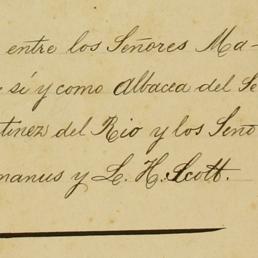 entre los Señores Ma-
sí y como Albacea del Se
tinez del Rio y los Señ
manus y L. H. Scott.